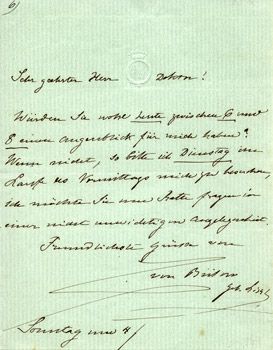 6)
Sehr geehrter Herr Doktor!
Würden Sie wohl heute zwischen 6 und
8 einen Augenblick für mich haben?
Wenn nicht, so bitte ich Dienstag im
Laufe des Vormittags mich zu besuchen,
ich möchte Sie um Rathe fragen in
einer nicht unwichtigen Angelegenheit.
Freundlichste Grüsse von
von Bülow
Sonntag um 4/